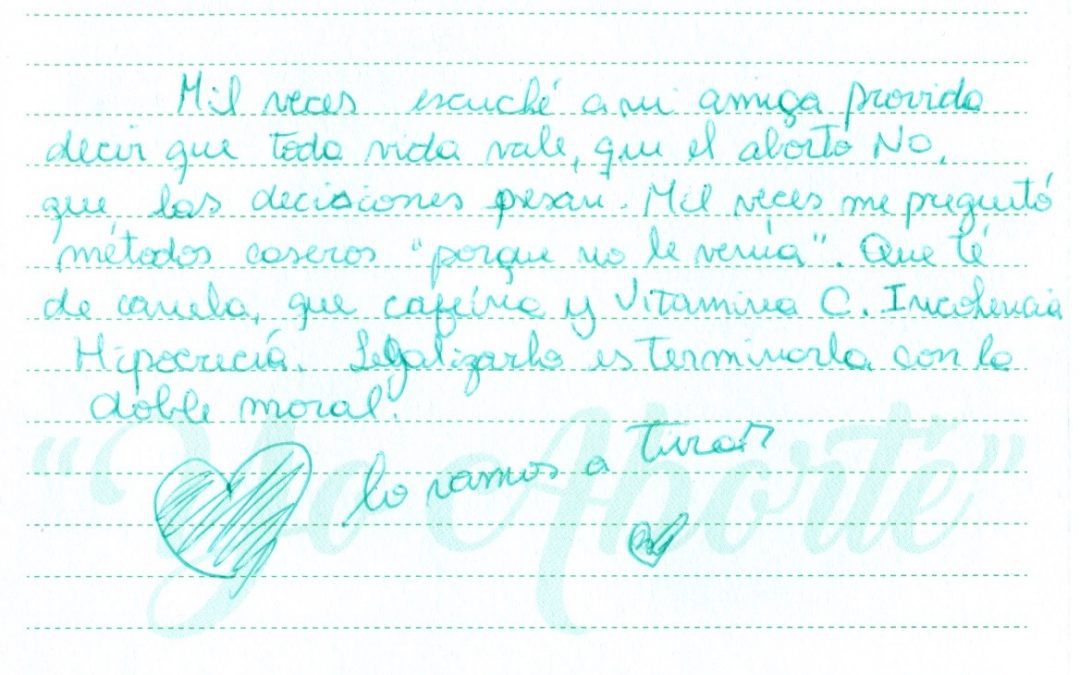 Mil veces escuché a mi amiga provida
decir que toda vida vale, que el aborto No,
que las decisiones pesan. Mil veces me preguntó
métodos caseros "porque no le venía". Que té
de canela, que cafeína y Vitamina C. Incoherencia
Hipocrecía. Legalizarlo es terminarla con la
doble moral.
lo vamos a tirar
"Yo Aborté"